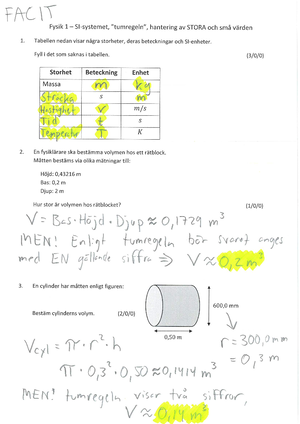 FACIT
Fysik 1 – SI-systemet, "tumregeln", hantering av STORA och små värden
1. Tabellen nedan visar några storheter, deras beteckningar och SI-enheter.
Fyll i det som saknas i tabellen. (3/0/0)
Storhet Beteckning Enhet
Massa m kg
Sträcka s m
Hastighet v m/s
Tid t s
Temperatur T K
2. En fysiklärare ska bestämma volymen hos ett rätblock.
Måtten bestäms via olika mätningar till:
Höjd: 0,43216 m
Bas: 0,2 m
Djup: 2 m
Hur stor är volymen hos rätblocket? (1/0/0)
V = Bas · Höjd · Djup ≈ 0,1729 m³
MEN! Enligt tumregeln bör svaret anges
med EN gällande siffra ⇒ V ≈ 0,2 m³
3. En cylinder har måtten enligt figuren:
600,0 mm
Bestäm cylinderns volym. (2/0/0)
0,50 m
r = 300,0 mm
= 0,3 m
Vcyl = π · r² · h
π · 0,3² · 0,50 ≈ 0,1414 m³
MEN! tumregeln visar två siffror,
V ≈ 0,14 m³